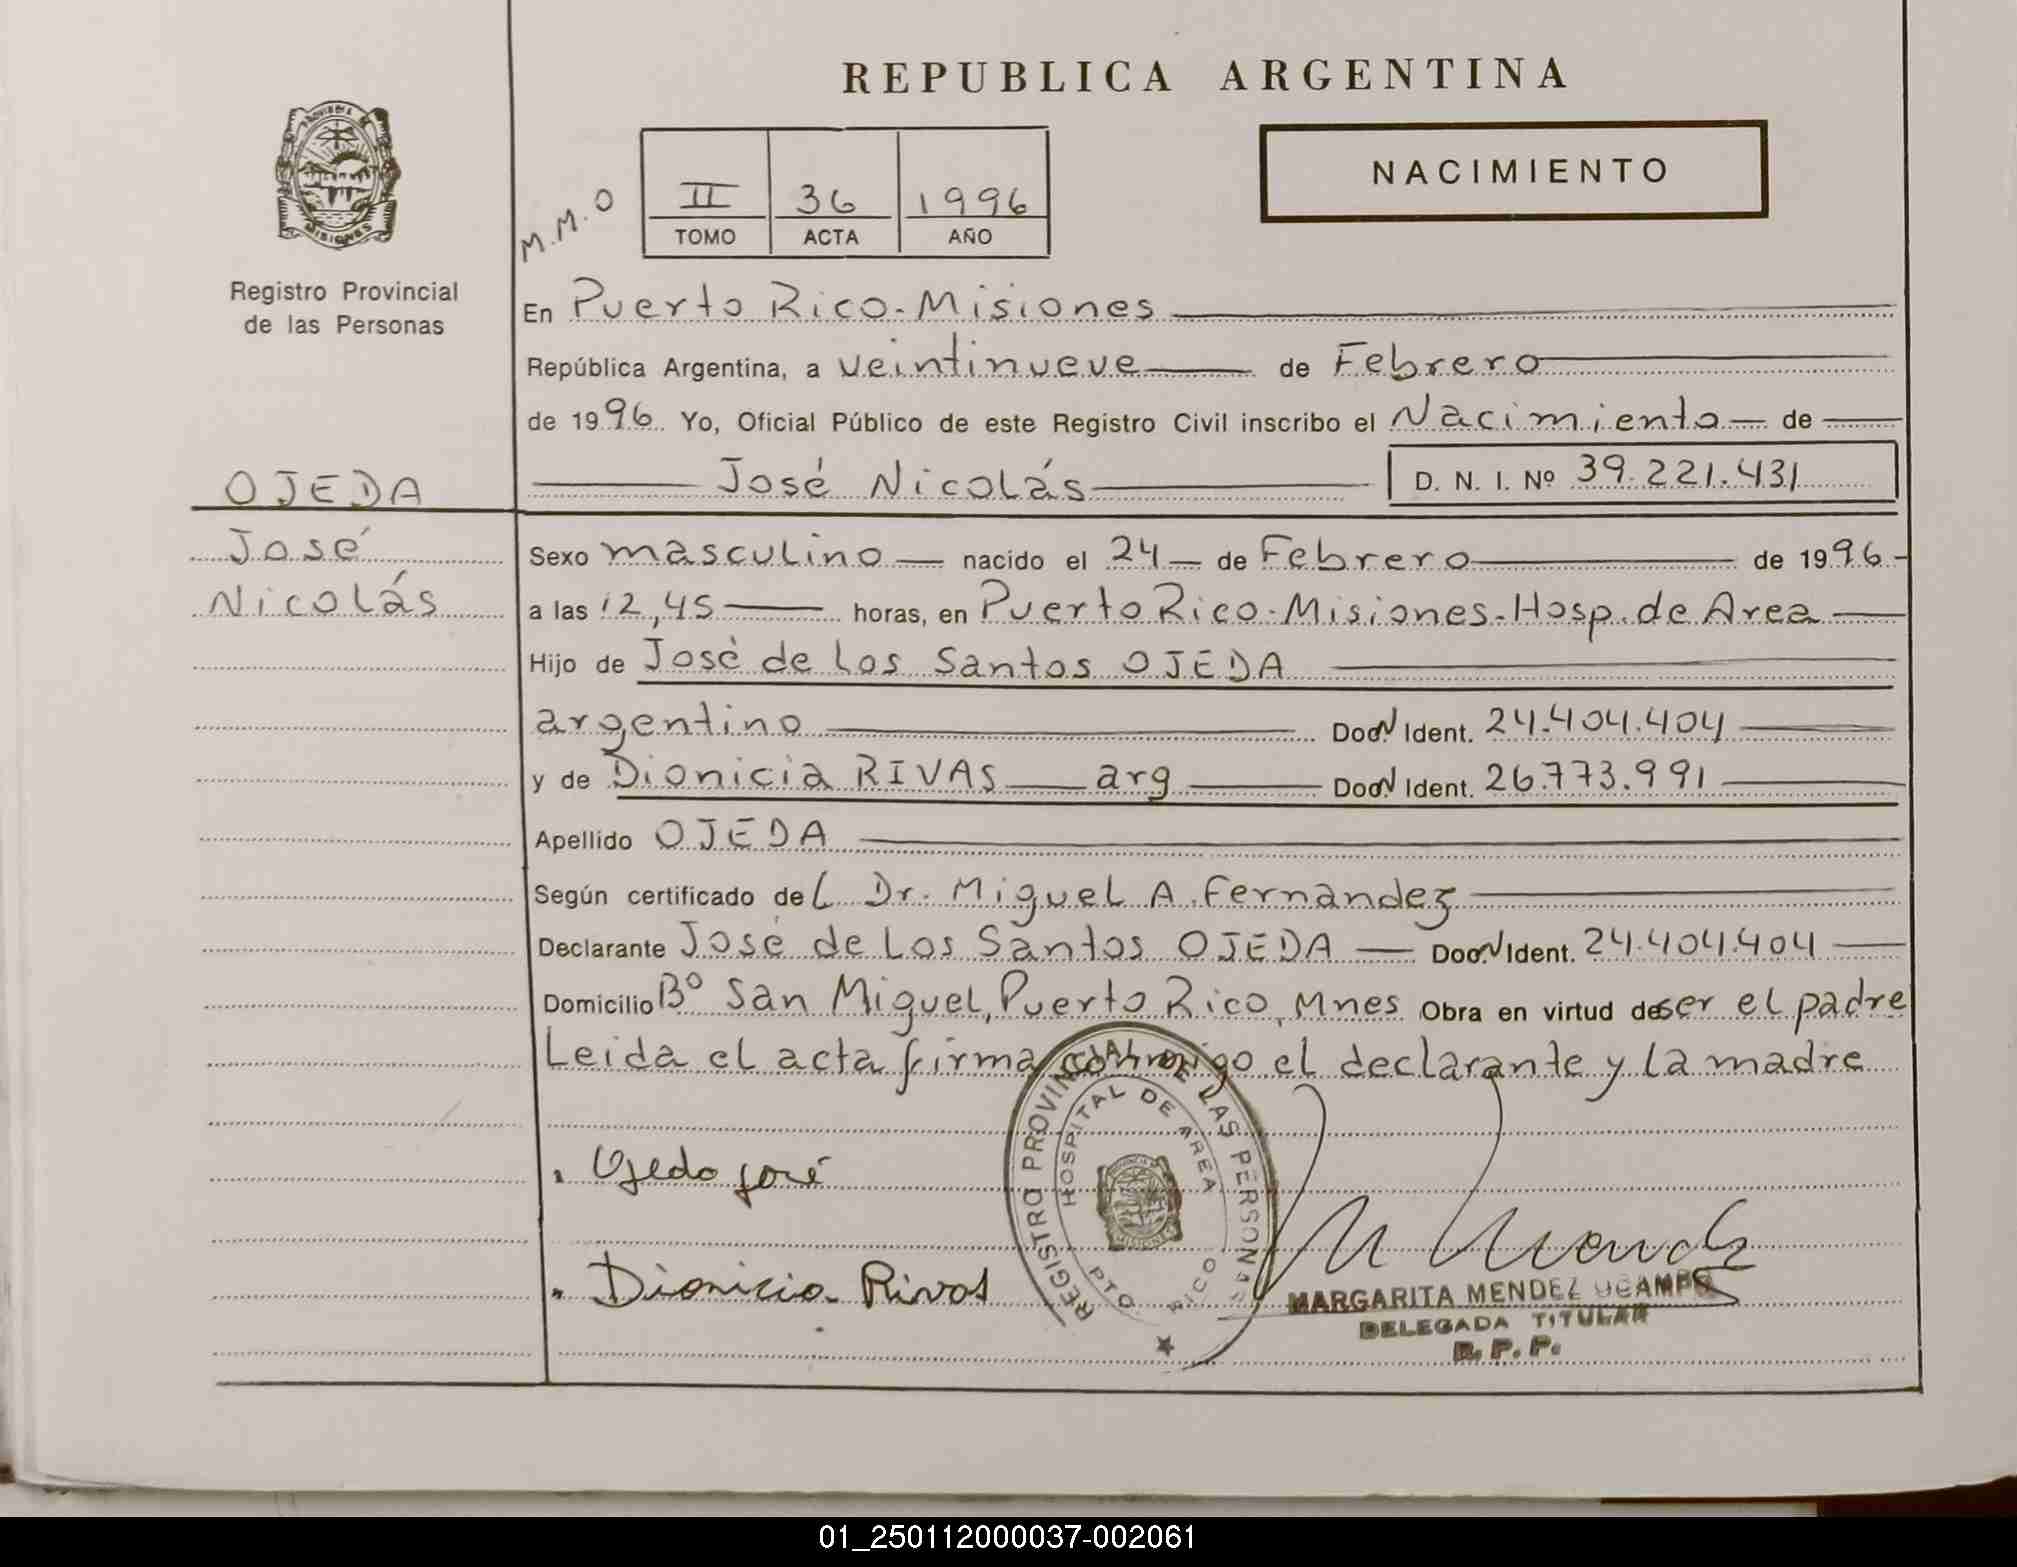 REPUBLICA ARGENTINA
PROVINCIA DE
MISIONES
Registro Provincial
de las Personas
NACIMIENTO
M.M.O
II 36 1996
TOMO ACTA AÑO
En Puerto Rico-Misiones
República Argentina, a veintinueve de Febrero
de 1996 Yo, Oficial Público de este Registro Civil inscribo el Nacimiento de
José Nicolás D. N. I. Nº 39.221.431
OJEDA
José
Nicolás
Sexo masculino nacido el 24 de Febrero de 1996
a las 12,45 horas, en Puerto Rico-Misiones-Hosp. de Area
Hijo de José de los Santos OJEDA
argentino Doc. N Ident. 24.404.404
y de Dionicia RIVAS arg Doc. N Ident. 26.773.991
Apellido OJEDA
Según certificado del Dr. Miguel A. Fernández
Declarante José de Los Santos OJEDA Doc. N Ident. 24.404.404
Domicilio Bº San Miguel, Puerto Rico, Mnes Obra en virtud de ser el padre
Leida el acta firma conmigo el declarante y la madre
Ojeda José
Dionicia Rivas
REGISTRO PROVINCIAL DE LAS PERSONAS
HOSPITAL DE AREA
PTO RICO
MISIONES
MARGARITA MENDEZ UCAMPO
DELEGADA TITULAR
R. P. P.
01_250112000037-002061